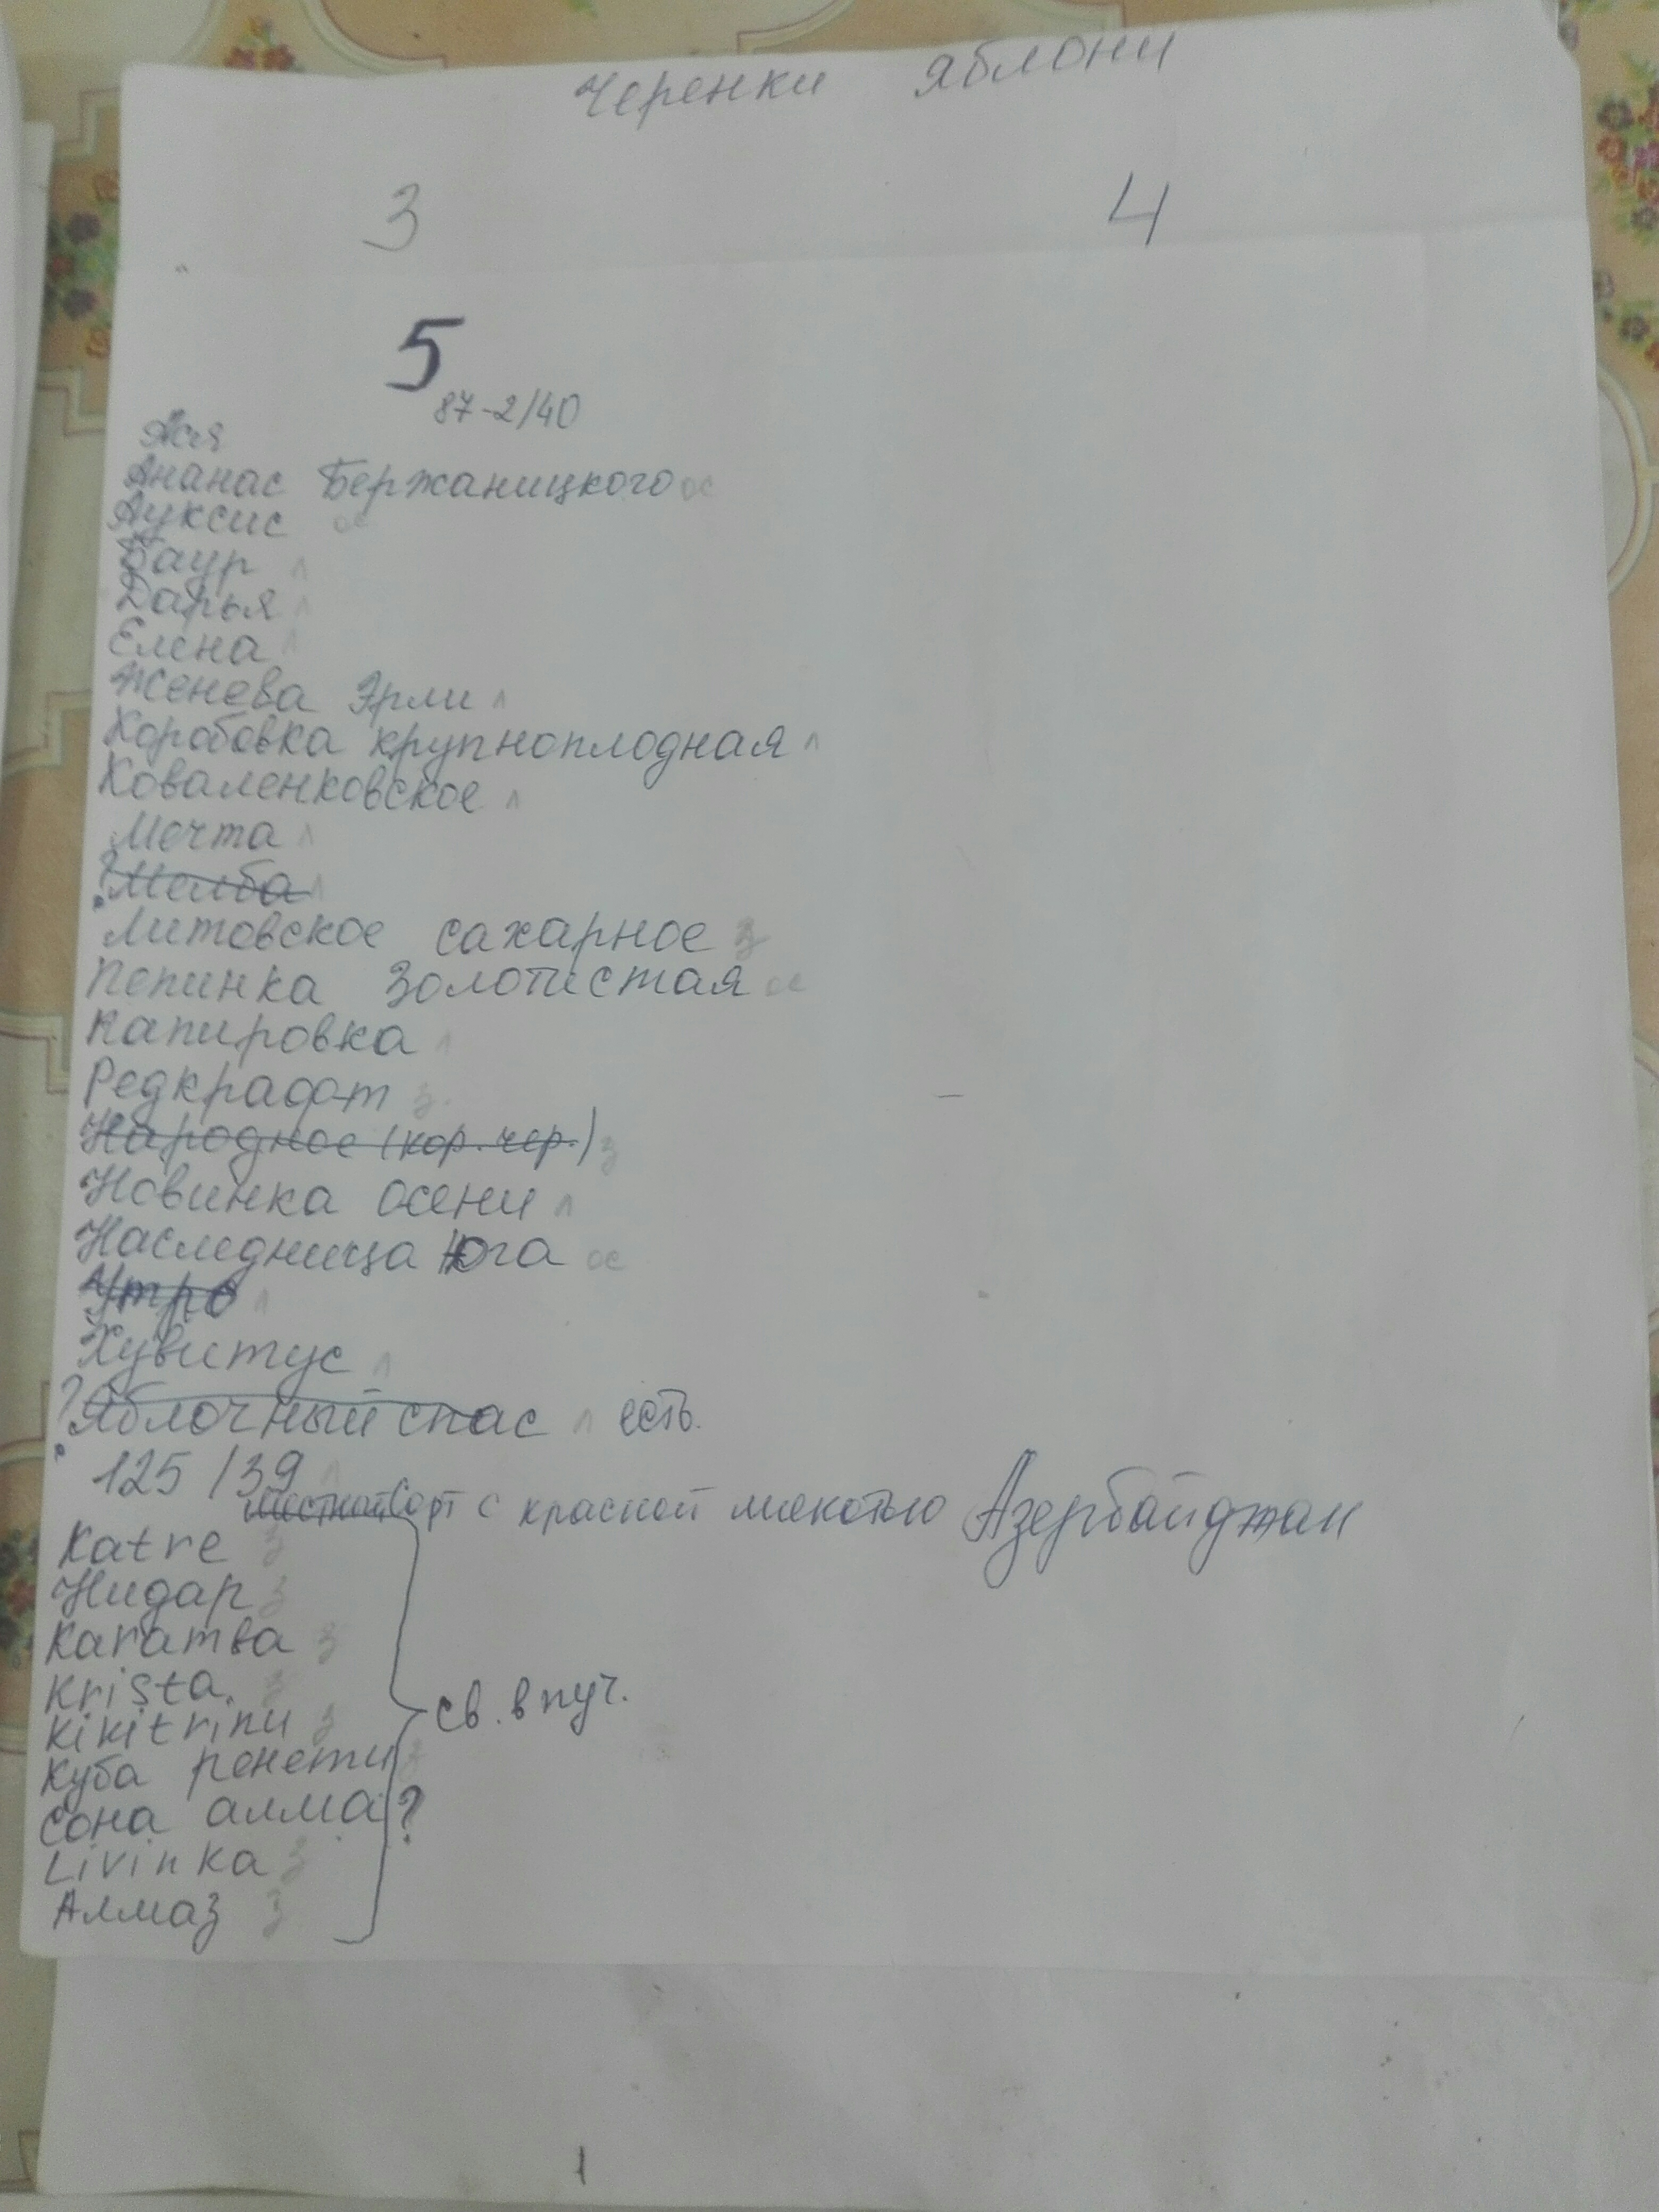 Черенки яблони
3 4
5
87-2/40
Ася
Ананас Бержаницкого ос
Ауксис ос
Баур л
Дарья л
Елена л
Женева Эрли л
Коробовка крупноплодная л
Коваленковское л
Мечта л
? Мелба л
Литовское сахарное з
Пепинка Золотистая ос
Папировка л
Редкрафт з
Народное (кор. чер.) з
Новинка осени л
Наследница Юга ос
Утро л
Хувитус л
? Яблочный спас л есть.
125/39 л
Местный Сорт с красной мякотью Азербайджан
Katre з
Нидар з
Каратва з
Krista з
Kikitrinu з
Куба ренети з
св. в пуч.
Сона алма ?
Livinka з
Алмаз з
1